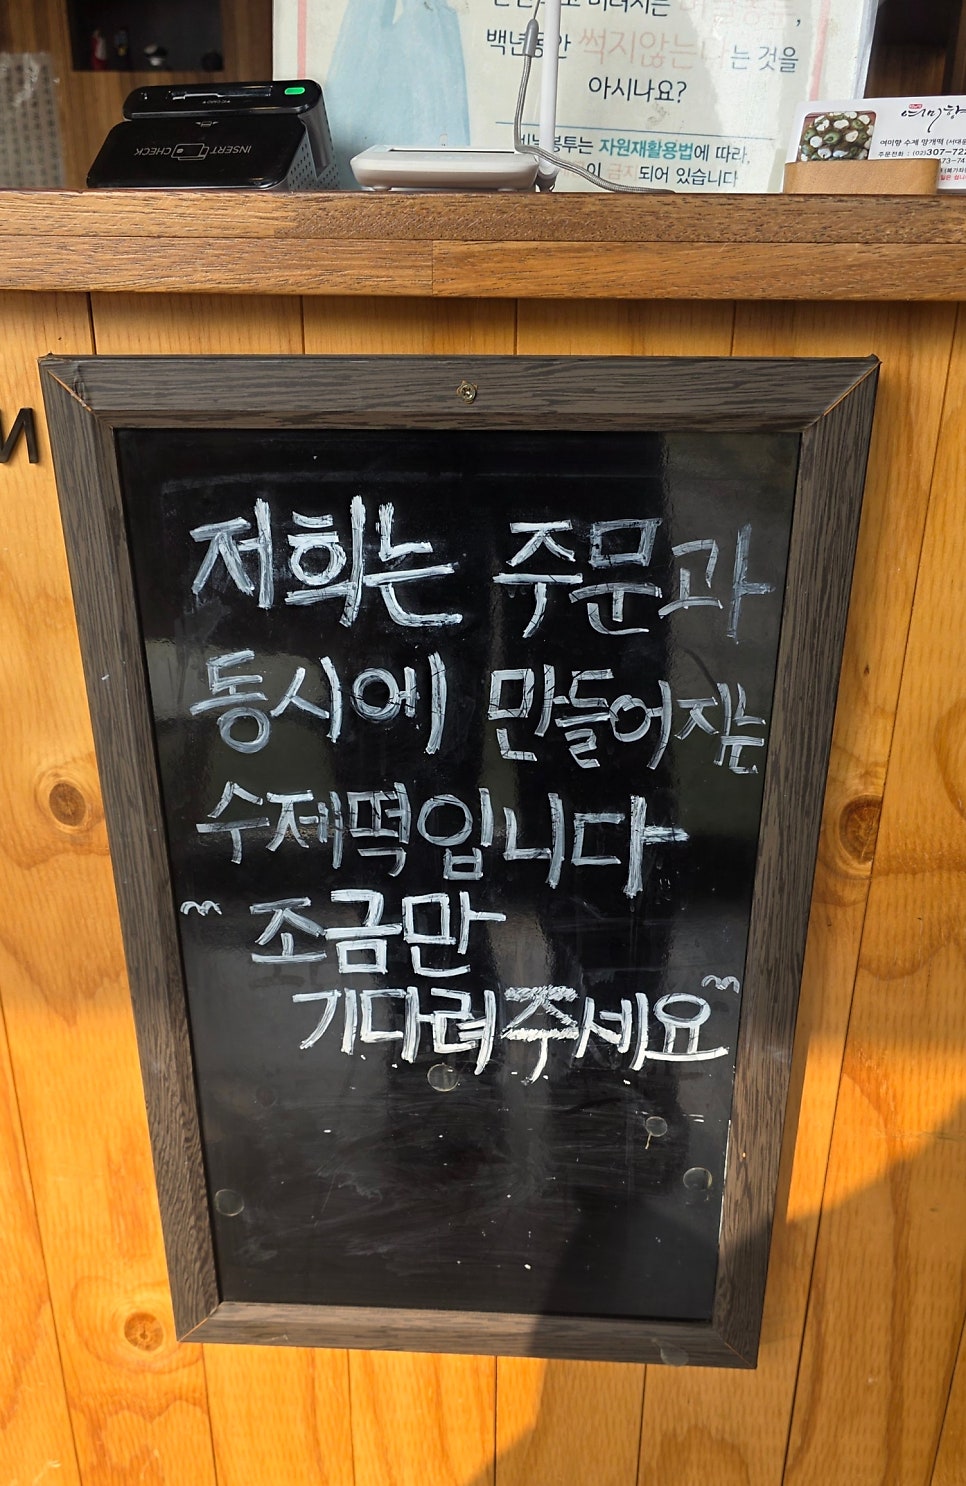 백년동안 썩지않는다는 것을
아시나요?
봉투는 자원재활용법에 따라,
금지되어 있습니다
INSERT CHECK
여미향
여미향 수제 망개떡
주문전화 : (02)307-722
저희는 주문과
동시에 만들어지는
수제떡입니다
조금만
기다려주세요